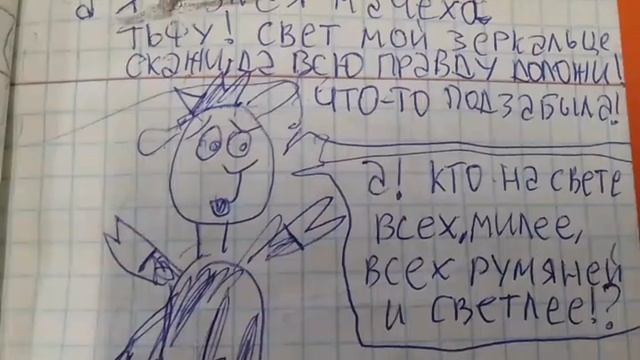 мачеха
ТЬФУ! СВЕТ МОЙ ЗЕРКАЛЬЦЕ
СКАЖИ, ДА ВСЮ ПРАВДУ ДОЛОЖИ!
ЧТО-ТО ПОДЗАБЫЛА!
а! КТО НА СВЕТЕ
ВСЕХ, МИЛЕЕ,
ВСЕХ РУМЯНЕЙ
И СВЕТЛЕЕ!?